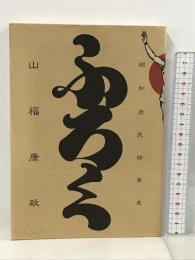 昭和庶民絵草史
ふろく
山福康政